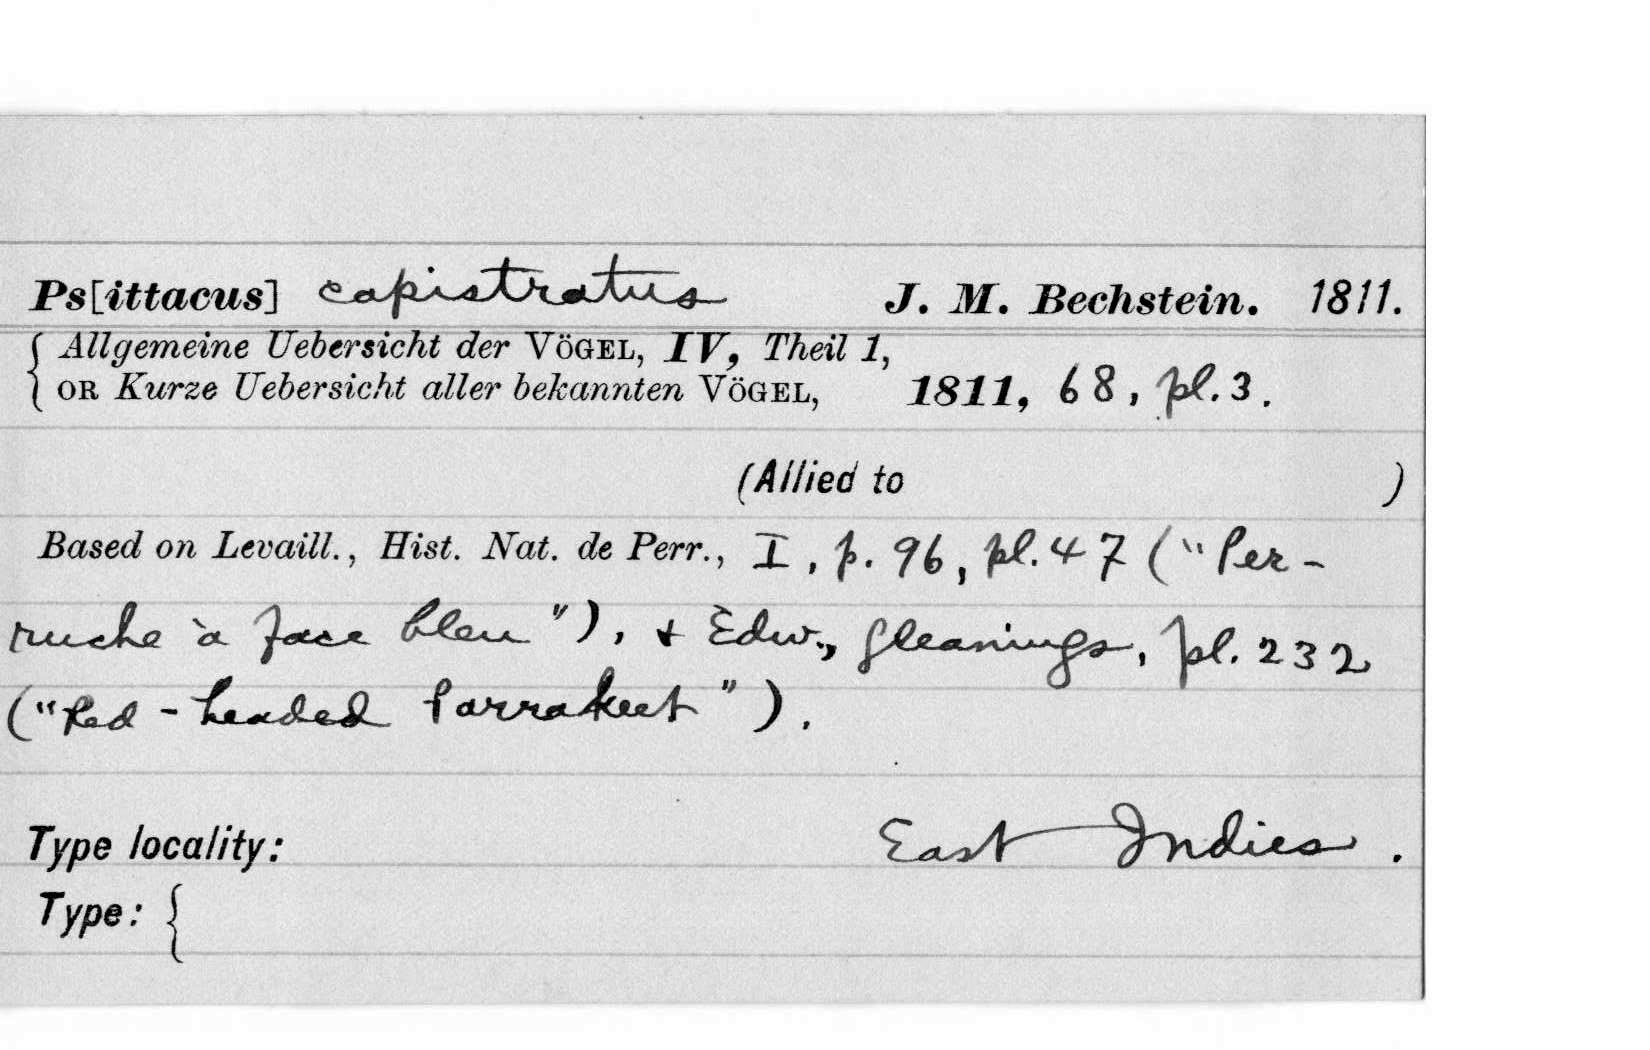 Ps[ittacus] capistratus J. M. Bechstein. 1811.
{ Allgemeine Uebersicht der VÖGEL, IV, Theil 1,
OR Kurze Uebersicht aller bekannten VÖGEL, 1811, 68, pl. 3.
(Allied to )
Based on Levaill., Hist. Nat. de Perr., I, p. 96, pl. 47 ("Per-
ruche à face bleu"), & Edw., Gleanings, pl. 232
("Red-headed Parrakeet").
Type locality: East Indies.
Type: {